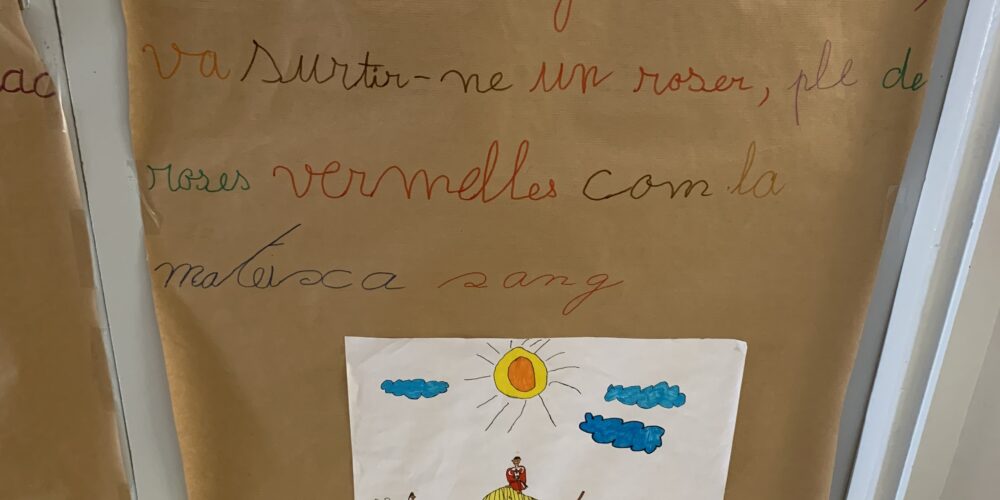 va surtir-ne un roser, ple de
roses vermelles com la
mateixa sang